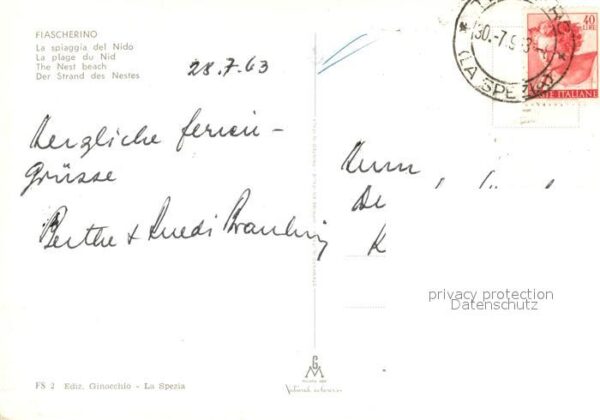 FIASCHERINO
La spiaggia del Nido
La plage du Nid
The Nest beach
Der Strand des Nestes
28.7.63
Herzliche Ferien-
Grüsse
Berthe & Ruedi
40
LIRE
STE ITALIANE
30.-7.9
(LA SPEZIA)
De
K
privacy protection
Datenschutz
FS 2 Ediz. Ginocchio - La Spezia
G
M